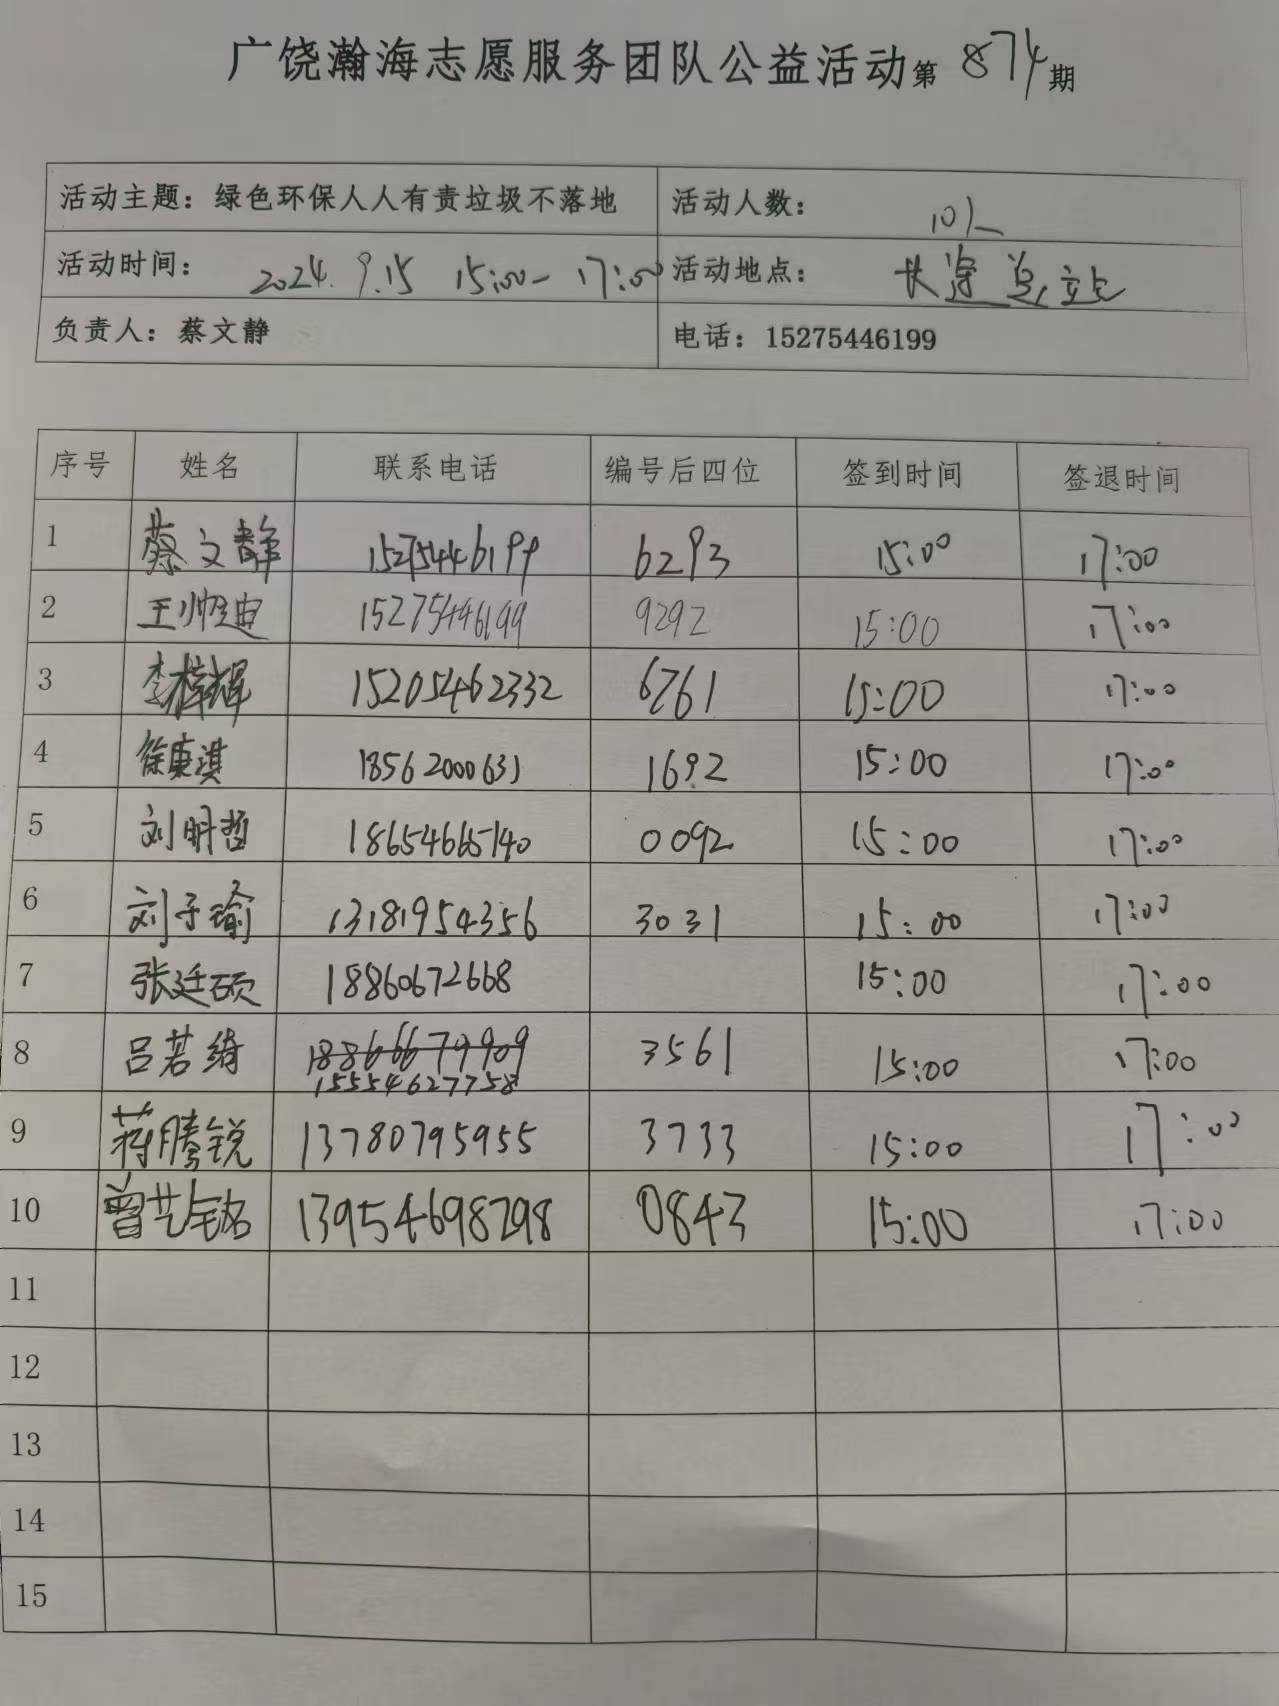 广饶瀚海志愿服务团队公益活动第 874 期
活动主题：绿色环保人人有责垃圾不落地 活动人数： 10人
活动时间： 2024.9.15 15:00-17:00 活动地点： 长途总站
负责人：蔡文静 电话：15275446199
序号 姓名 联系电话 编号后四位 签到时间 签退时间
1 蔡文静 15275446199 6293 15:00 17:00
2 王帅迪 15275446199 9292 15:00 17:00
3 李梓辉 15205462332 6761 15:00 17:00
4 徐康淇 18562000631 1692 15:00 17:00
5 刘明哲 18654665140 0092 15:00 17:00
6 刘子瑜 13181954356 3031 15:00 17:00
7 张廷硕 18860672668 15:00 17:00
8 吕若绮 18866679909 3561 15:00 17:00
15554627758
9 蒋腾锐 13780795955 3733 15:00 17:00
10 曾艺铭 13954698298 0843 15:00 17:00
11
12
13
14
15